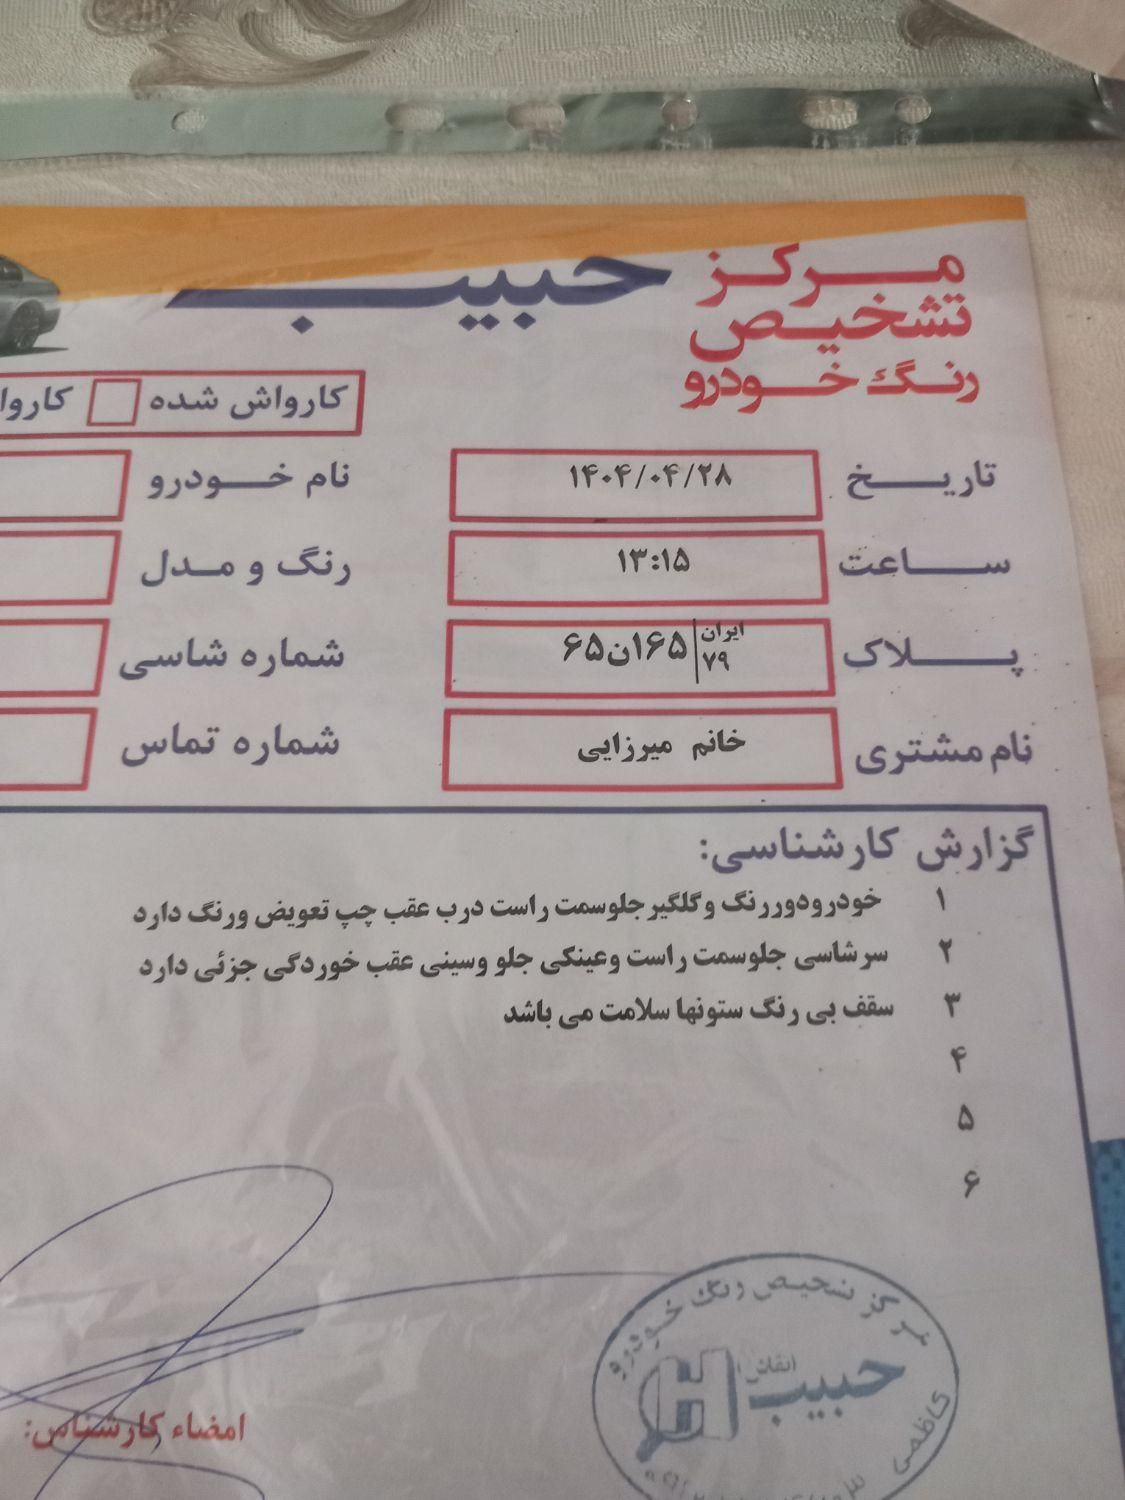 مرکز
تشخیص
رنگ خودرو
حبیب
کارواش شده
تاریخ ۱۴۰۴/۰۴/۲۸ نام خودرو
ساعت ۱۳:۱۵ رنگ و مدل
پلاک ایران ۷۹ ۱۶۵ن۶۵ شماره شاسی
نام مشتری خانم میرزایی شماره تماس
گزارش کارشناسی:
۱ خودرودوررنگ وگلگیرجلوسمت راست درب عقب چپ تعویض ورنگ دارد
۲ سرشاسی جلوسمت راست وعینکی جلو وسینی عقب خوردگی جزئی دارد
۳ سقف بی رنگ ستونها سلامت می باشد
۴
۵
۶
مرکز تشخیص رنگ خودرو
حبیب
کاظمی
امضاء کارشناس: